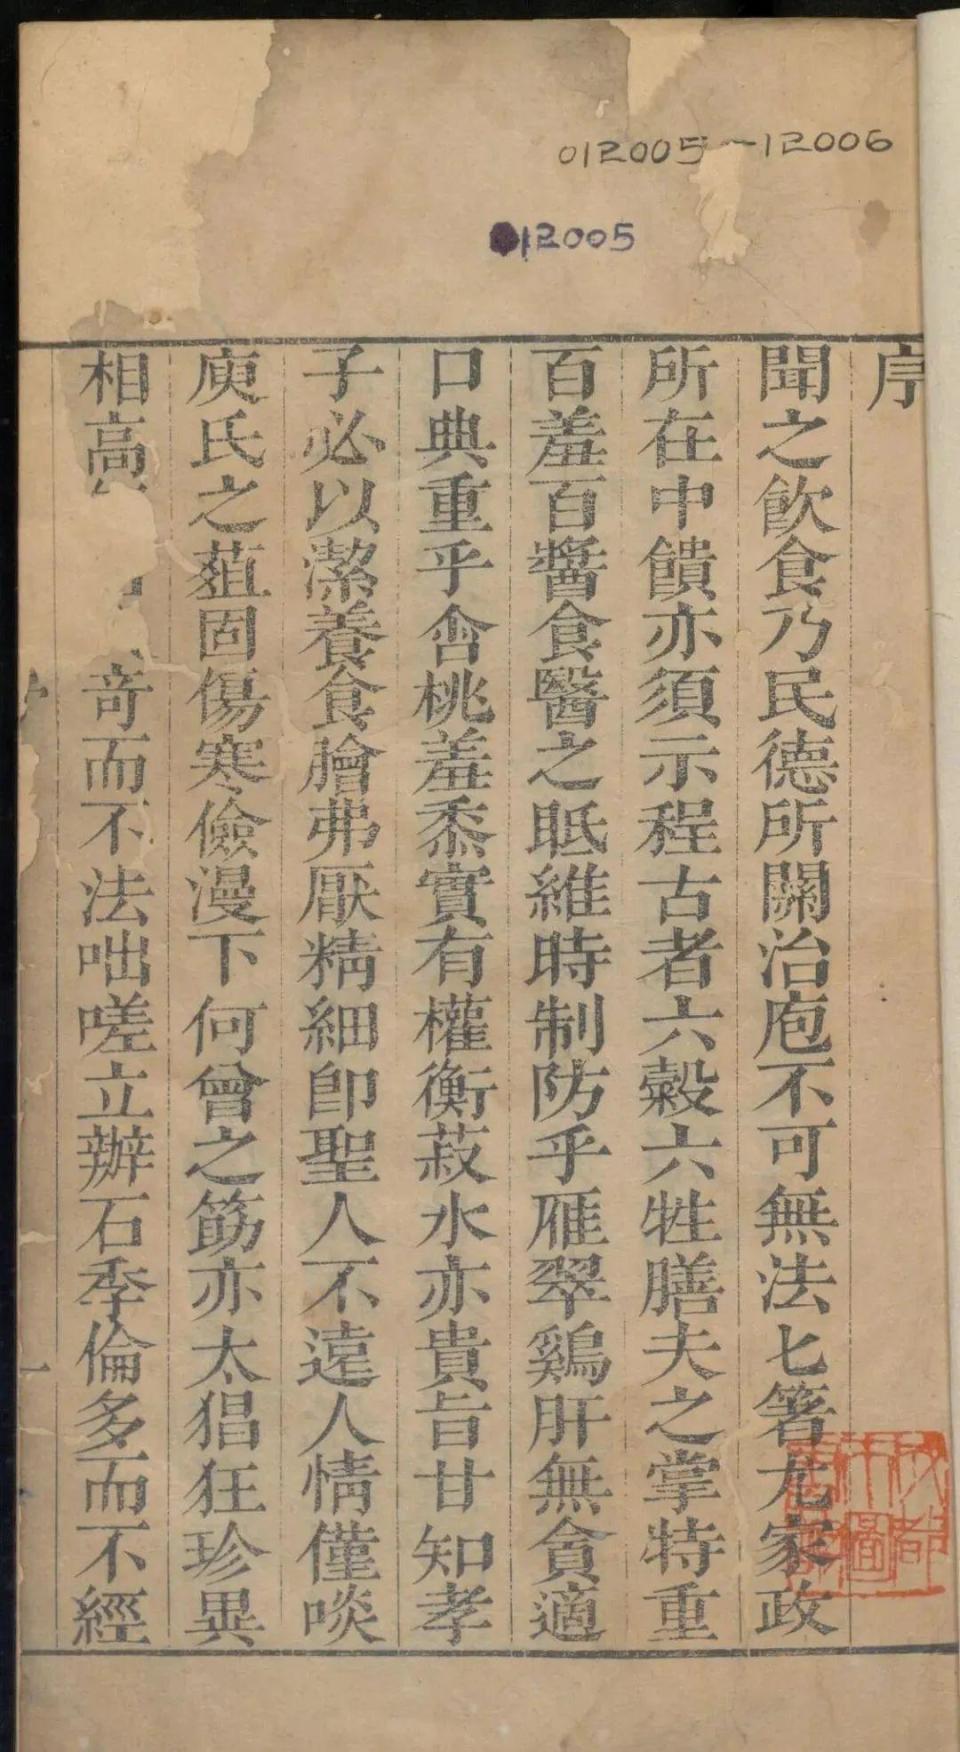 012005-12006
012005
序
聞之飲食乃民德所關治庖不可無法匕箸尤家政
所在中饋亦須示程古者六穀六牲膳夫之掌特重
百羞百醬食醫之眂維時制防乎雁翠鷄肝無貪適
口典重乎含桃羞黍實有權衡菽水亦貴旨甘知孝
子必以潔養食膾弗厭精細卽聖人不遠人情僅啖
庾氏之葅固傷寒儉漫下何曾之筯亦太猖狂珍異
相高 奇而不法咄嗟立辦石季倫多而不經
成都
圖